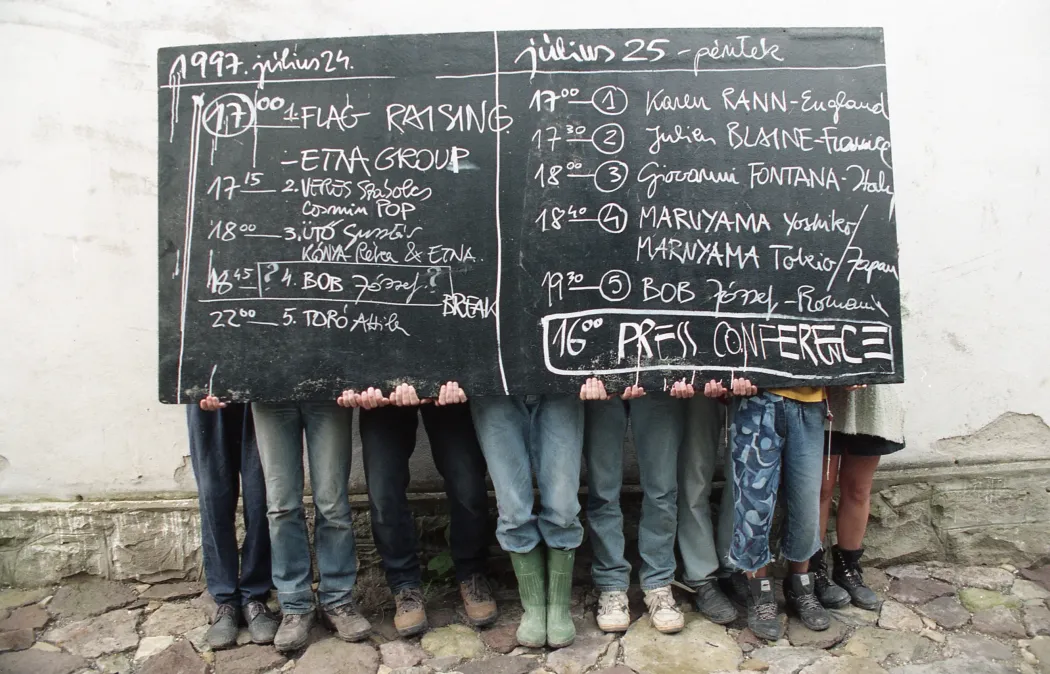 1997. július 24.
17 00 1. FLAG RAISING
- ETNA GROUP
17 15 — 2. VERES Szabolcs
Cosmin POP
18 00 — 3. ÜTŐ Gusztáv
KÓNYA Réka & ETNA.
18 45 — ? 4. BOB József ?
BREAK
22 00 — 5. TORÓ Attila
július 25 - péntek
17 00 — 1 Karen RANN - England
17 30 — 2 Julien BLAINE - France
18 00 — 3 Giovanni FONTANA - Italy
18 40 — 4 MARUYAMA Yoshiko/
MARUYAMA Tokio / Japan
19 30 — 5 BOB József - Romania
16 00 PRESS CONFERENCE